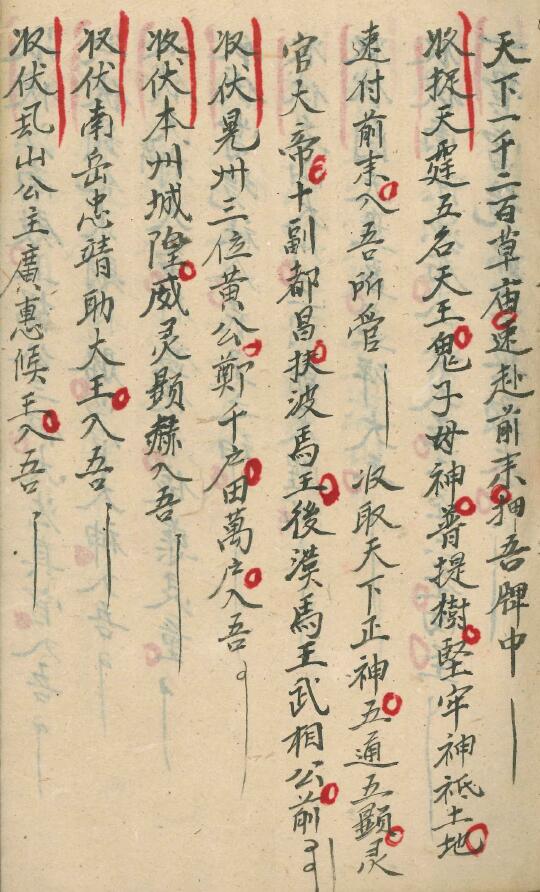 天下一千二百草庙速赴前来押吾牌中
收捉天霆五名天王鬼子母神普提樹堅牢神祗土地
速付前来入吾所管　収取天下正神五通五顯灵
官天帝十副都昌扶波馬王後漢馬王武相公前
収伏晃州三位黄公鄭千戸田萬戸入吾
収伏本州城隍威灵顯赫入吾
収伏南岳忠靖助大王入吾
収伏風山公主廣惠候王入吾